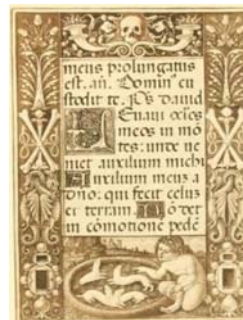 meus prolungatus
est. an̄. Domin' cu
stodit te. Ps dauid
Leuaui oc̄l'os
meos in mō
tes: unde ue
niet auxilium michi
Auxilium meuz a
dño: qui fecit celuz
et terram. Nō det
in cōmotione pedē